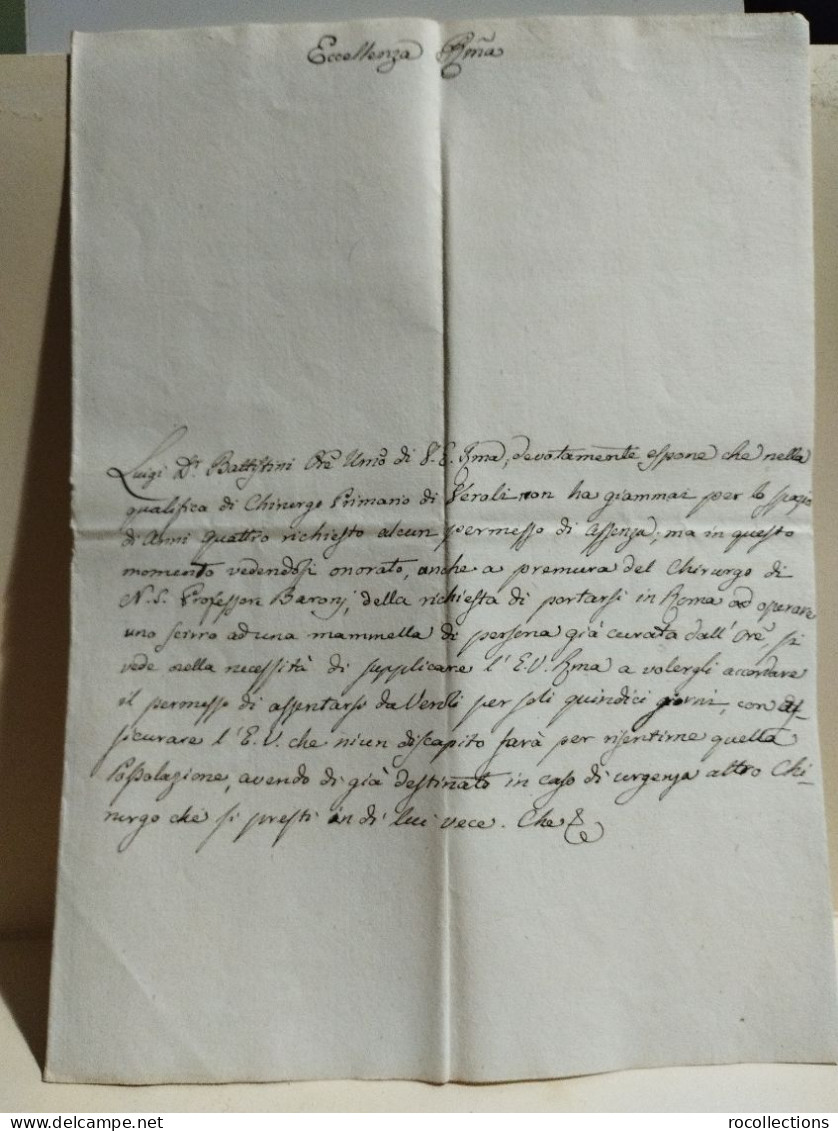 Eccellenza Rm̃a
Luigi Dr. Battistini Orẽ Umo di V. E. Rma, devotamente espone che nella
qualifica di Chirurgo Primario di Veroli non ha giammai per lo spazio
di Anni quattro richiesto alcun permesso di assenza; ma in questo
momento vedendosi onorato, anche a premura del Chirurgo di
N. S. Professore Baronj, della richiesta di portarsi in Roma ad operare
uno scirro ad una mammella di persona già curata dall' Orẽ, si
vede nella necessità di supplicare l' E. V. Rma a volergli accordare
il permesso di assentarsi da Veroli per soli quindici giorni, con as-
sicurare l' E. V. che niun discapito sarà per risentirne quella
Popolazione, avendo di già destinato in caso di urgenza altro Chi-
rurgo che si presti in di lui vece. Che &
rocollections